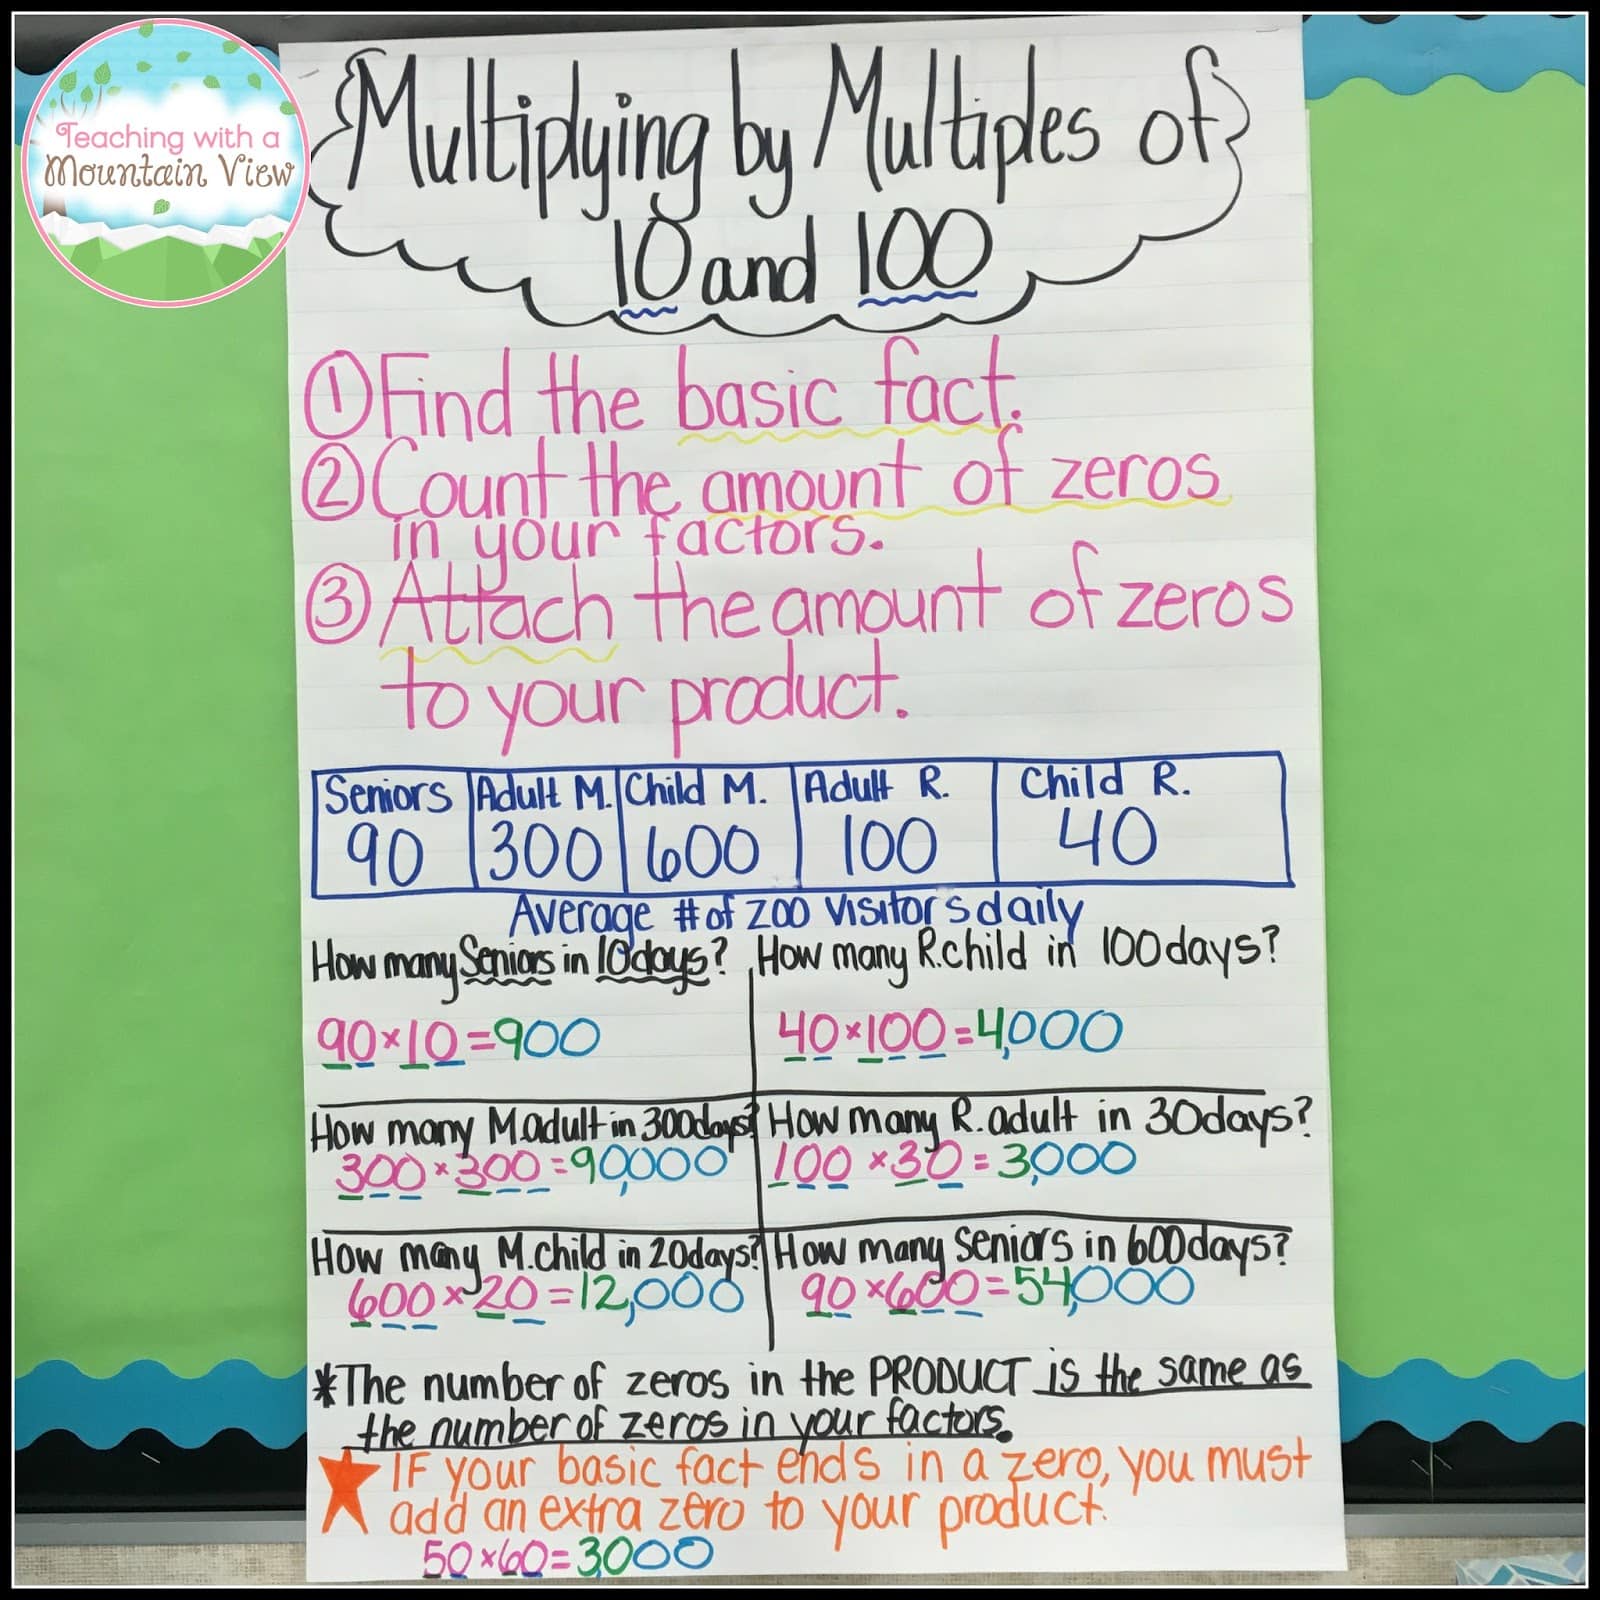 Teaching with a
Mountain View
Multiplying by Multiples of
10 and 100
① Find the basic fact.
② Count the amount of zeros
in your factors.
③ Attach the amount of zeros
to your product.
Seniors Adult M. Child M. Adult R. Child R.
90 300 600 100 40
Average # of zoo visitors daily
How many Seniors in 10 days?
90×10=900
How many R.child in 100 days?
40×100=4,000
How many M.adult in 300 days?
300×300=90,000
How many R. adult in 30 days?
100×30=3,000
How many M.child in 20 days?
600×20=12,000
How many Seniors in 600 days?
90×600=54,000
*The number of zeros in the PRODUCT is the same as
the number of zeros in your factors.
★ IF your basic fact ends in a zero, you must
add an extra zero to your product.
50×60=3,000